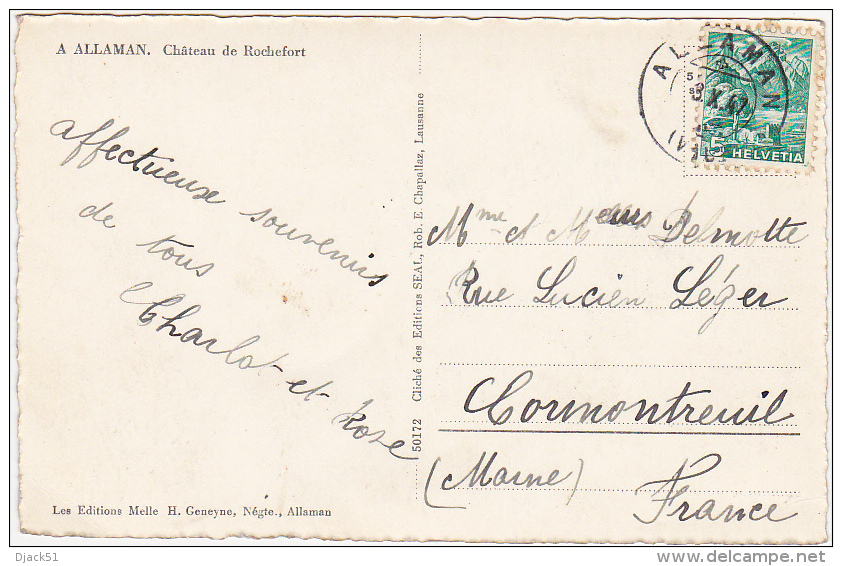 A ALLAMAN. Château de Rochefort
affectueux souvenirs
de tous
Charlot et Rose
Les Editions Melle H. Geneyne, Négte., Allaman
50172 Cliché des Editions SEAL, Rob. E. Chapallaz, Lausanne
ALLAMAN
X.47
5
HELVETIA
Mme et Delmotte
Rue Lucien Léger
Cormontreuil
(Marne)
France
Djack51
delcampe.net